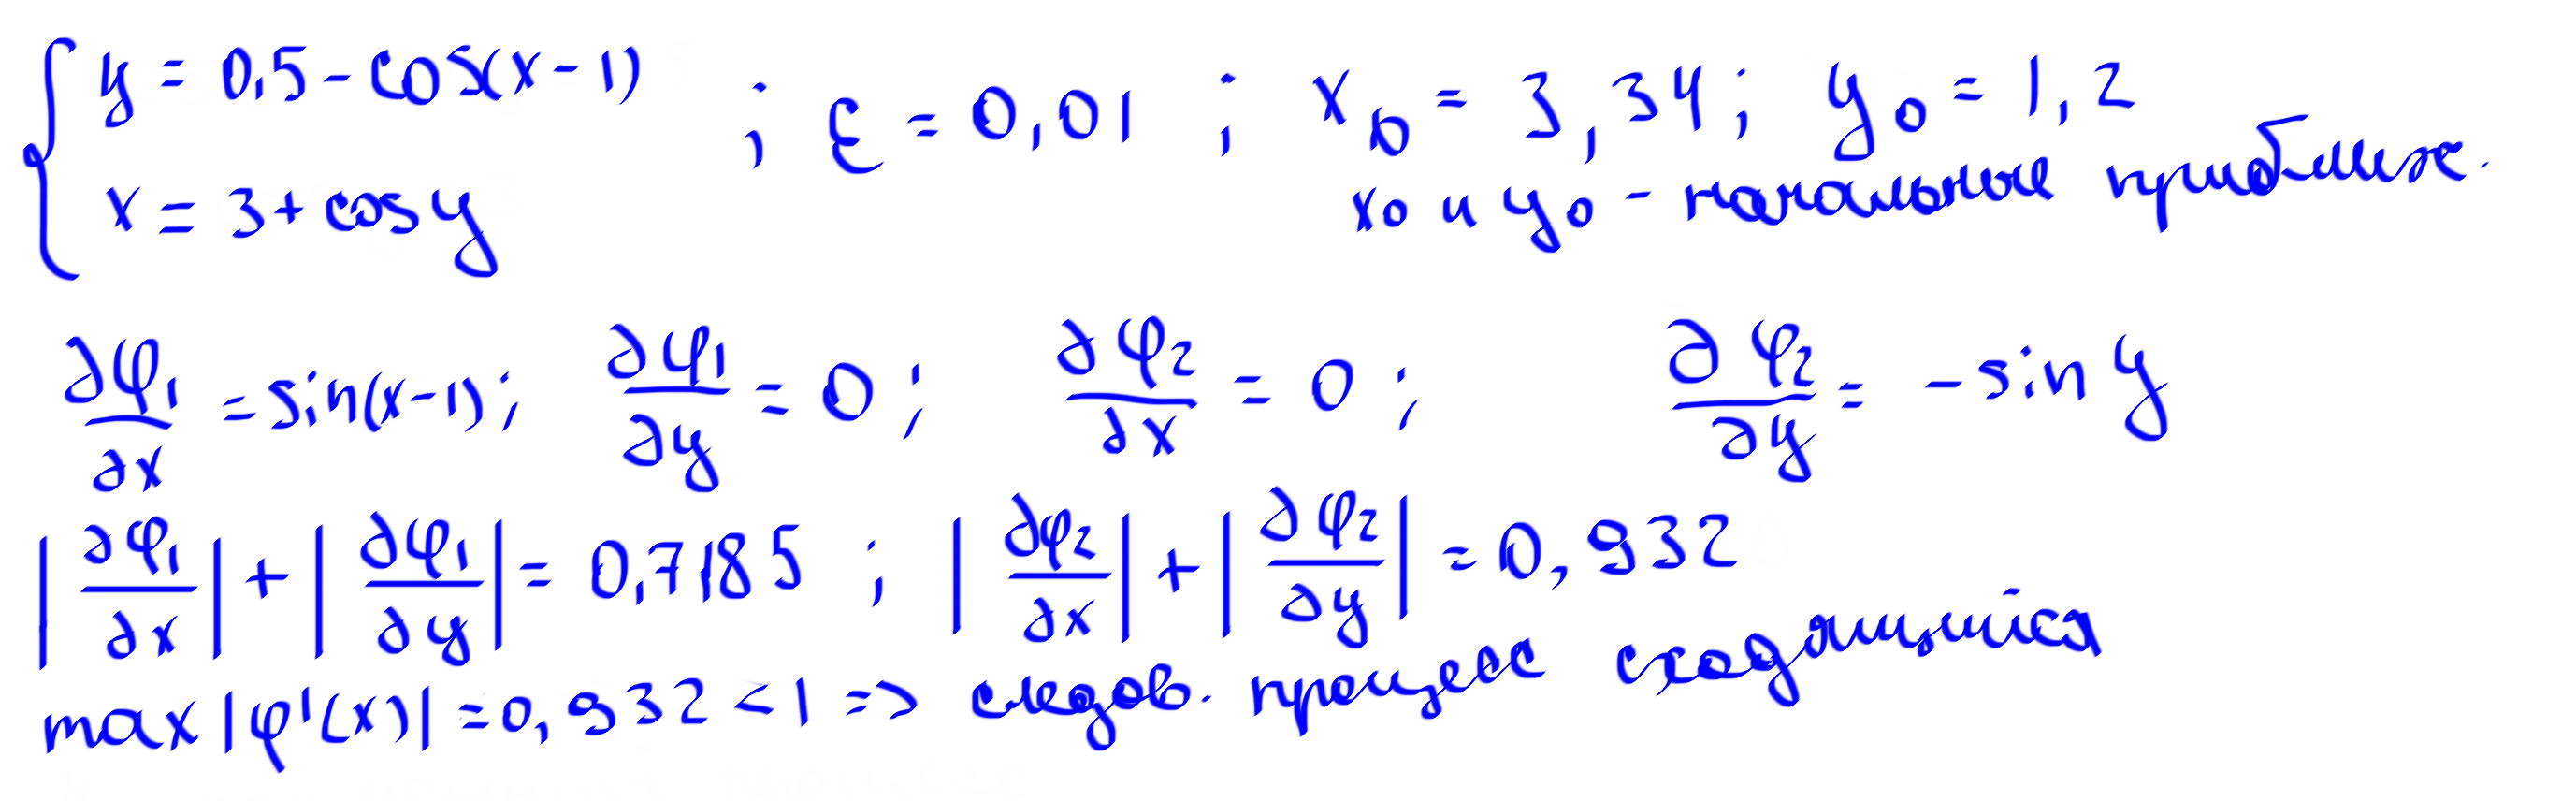 { y = 0,5 - cos(x - 1) ; ε = 0,01 ; x₀ = 3,34; y₀ = 1,2
x = 3 + cos y
x₀ и y₀ - начальные приближ.
∂φ₁/∂x = sin(x-1); ∂φ₁/∂y = 0; ∂φ₂/∂x = 0; ∂φ₂/∂y = - sin y
|∂φ₁/∂x| + |∂φ₁/∂y| = 0,7185 ; |∂φ₂/∂x| + |∂φ₂/∂y| = 0,932
max |φ'(x)| = 0,932 < 1 => следов. процесс сходящийся